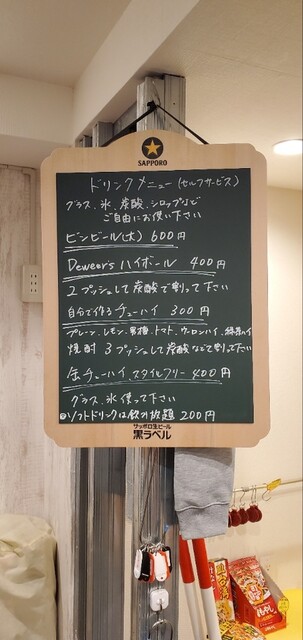 SAPPORO
ドリンクメニュー(セルフサービス)
グラス、氷、炭酸、シロップなど
ご自由にお使い下さい
ビンビール(大) 600円
Deweer's ハイボール 400円
2プッシュして炭酸で割って下さい
自分で作るチューハイ 300円
プレーン、レモン、男梅、トマト、ウーロンハイ、緑茶ハイ
焼酎 3プッシュして炭酸などで割って下さい
缶チューハイ、スタイルフリー 400円
グラス、氷使って下さい
ソフトドリンクは飲み放題 200円
サッポロ生ビール
黒ラベル